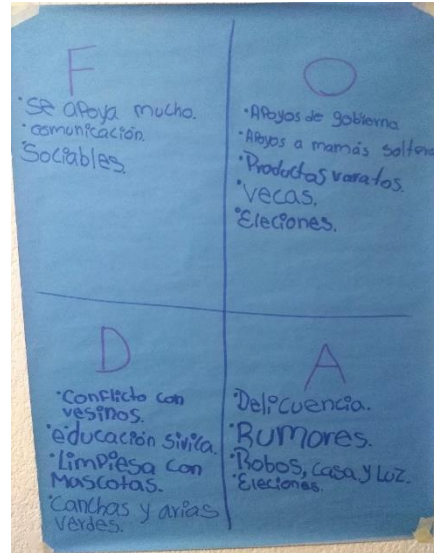 F
•Se apoya mucho.
•comunicación.
Sociables.
O
•Apoyos de gobierno
•Apoyos a mamás soltera
•Productos varatos.
•Vecas.
•Eleciones.
D
•Conflicto con
vesinos.
•educación sivica.
•Limpiesa con
Mascotas.
•Canchas y arias
verdes.
A
•Delicuencia.
•Rumores.
•Robos, casa y Luz.
•Eleciones.